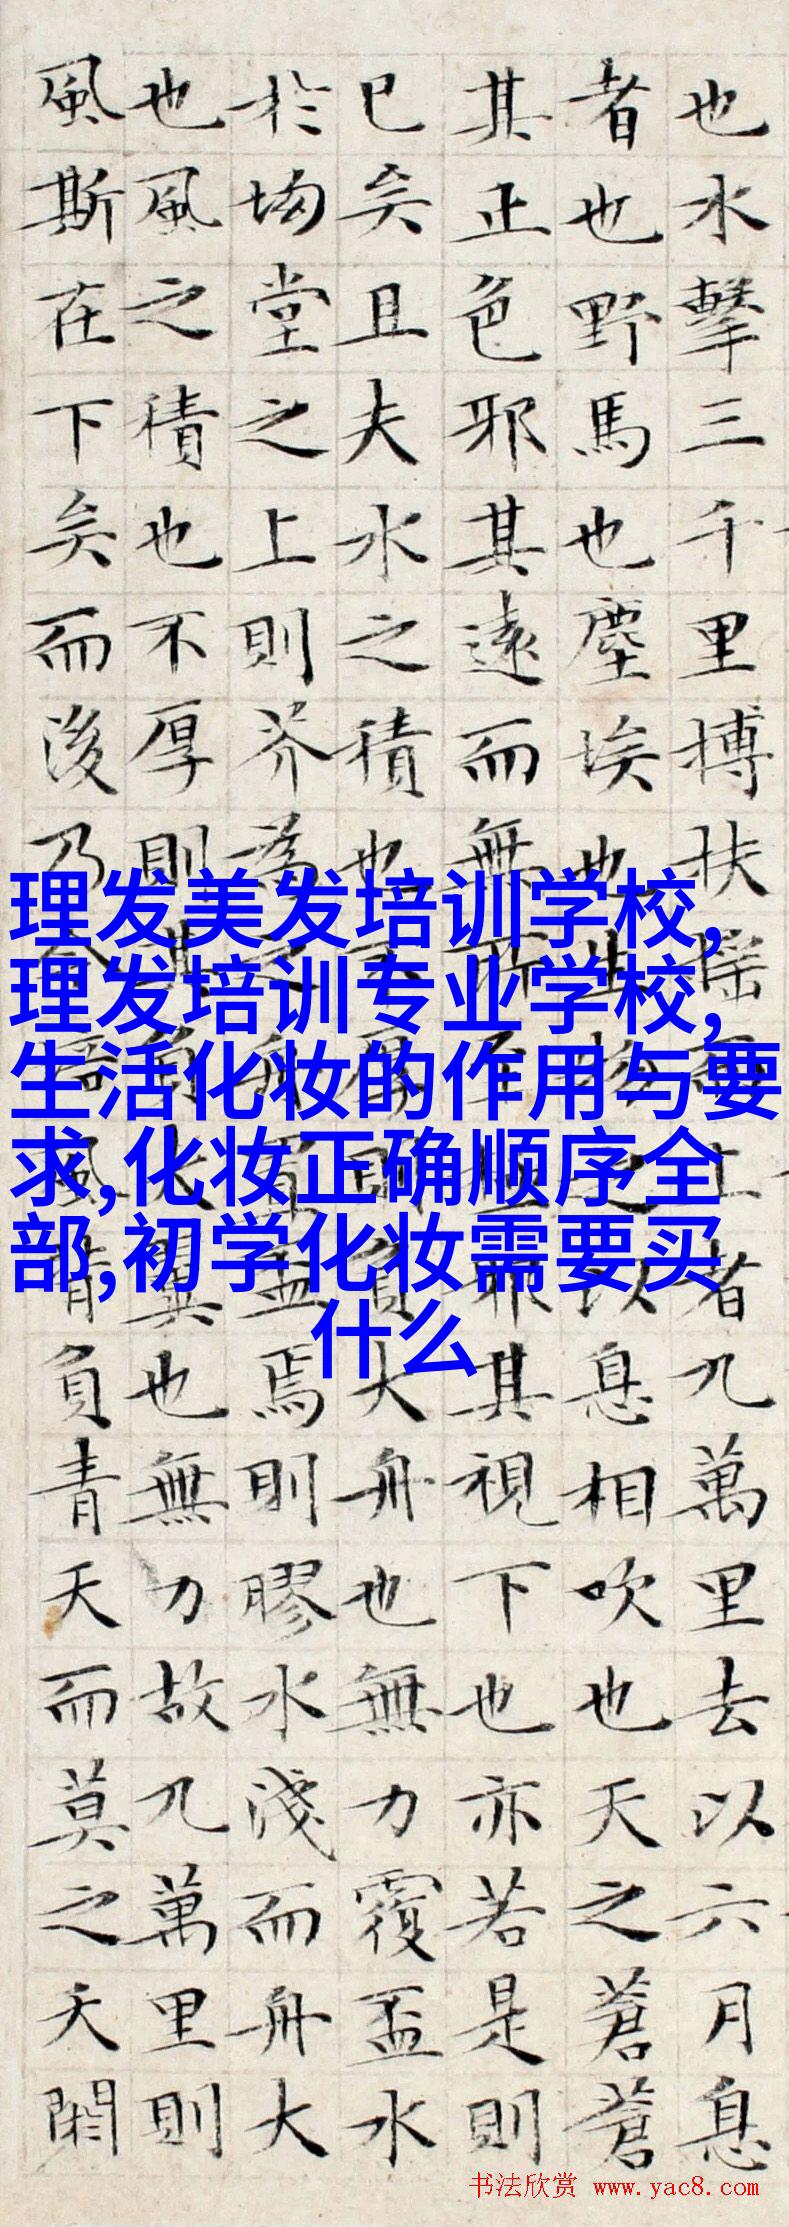 也水擊三千里搏扶搖而上者九萬里去以六月息
者也野馬也塵埃也生物之以息相吹也天之蒼蒼
其正色邪其遠而無所至極邪其視下也亦若是則
已矣且夫水之積也不厚則負大舟也無力覆盃水
於坳堂之上則芥為之舟置盃焉則膠水淺而舟大
也風之積也不厚則其負大翼也無力故九萬里則
風斯在下矣而後乃今培風背負青天而莫之夭閼
理发美发培训学校,
理发培训专业学校,
生活化妆的作用与要
求,化妆正确顺序全
部,初学化妆需要买
什么
书法欣赏 www.yac8.com